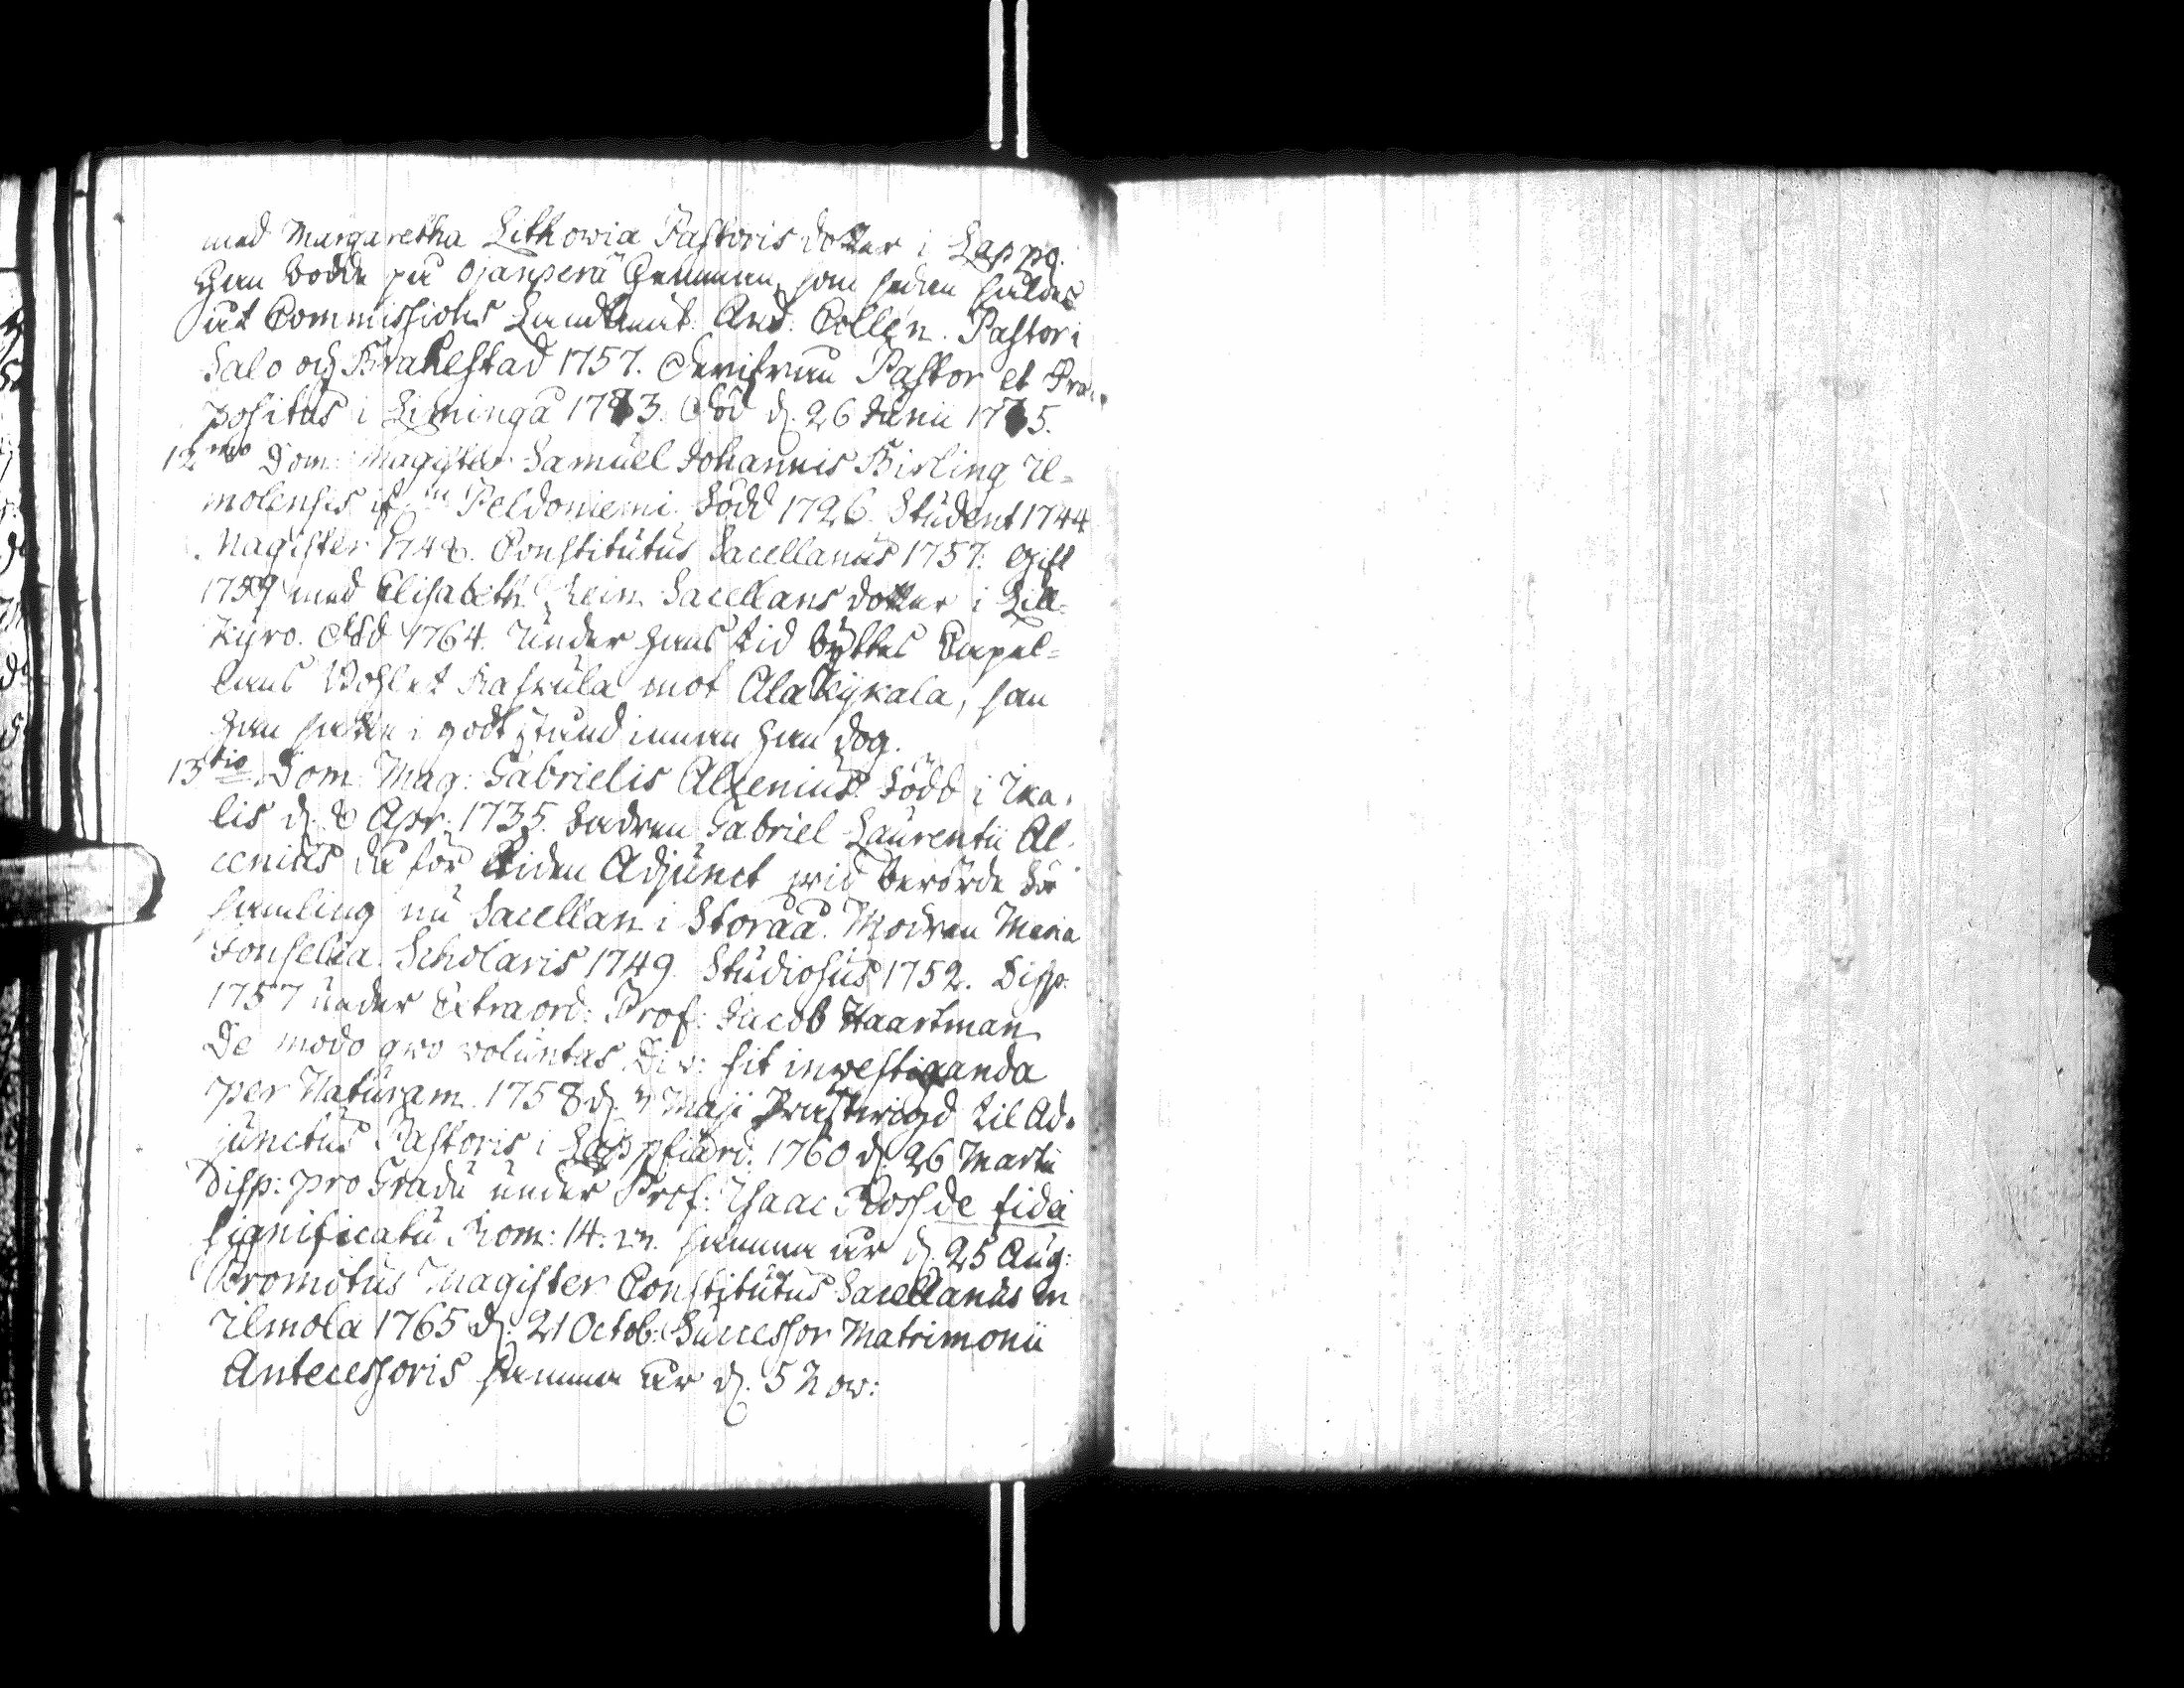 med Margaretha Lithovia Pastoris dotter i Lappo.
Han bodde på Ojanperä Hemman, som sedan såldes
åt Commissions Landtmät: And: Collin. Pastor i
Salo och Brahestad 1757. Pastor et Præ-
positus i Limingå 1763. Död d. 26 Junii 1775.
12mo Dom: Magister Samuel Johannis Birling Il-
molensis in Peldoniemi. Född 1726. Student 1744
Magister 1748. Constitutus Sacellanus 1757. Gift
1759 med Elisabeth Rein Sacellans dotter i Lill-
Kyro. Död 1764. Under hans tid byttes Capel-
lans Bohlet mot Alakykala, som
han satte i godt stånd innan han dog.
13tio Dom: Mag: Gabrielis Alcenius född i Ika-
lis d. 8 Apr: 1735. Fadren Gabriel Laurentii Al-
cenius då för tiden Adjunct wid berörde För-
samling nu Sacellan i Storåå. Modren Maria
Fonselia. Scholaris 1749. Studiosus 1752. Disp:
1757 under Extraord: Prof: Jacob Haartman
De modo qvo voluntas Div: sit investiganda
per Naturam. 1758 d. Maji Prästwigd til Ad-
junctus Pastoris i Lappfiärd. 1760 d. 26 Martii
Disp: pro Gradu under Prof: Isaac Ross de fidei
significatu Rom: 14. samma år d. 25 Aug:
Promotus Magister Constitutus Sacellanus in
Ilmola 1765 d. 21 Octob: Successor Matrimonii
Antecessoris samma år d. 5 Nov: